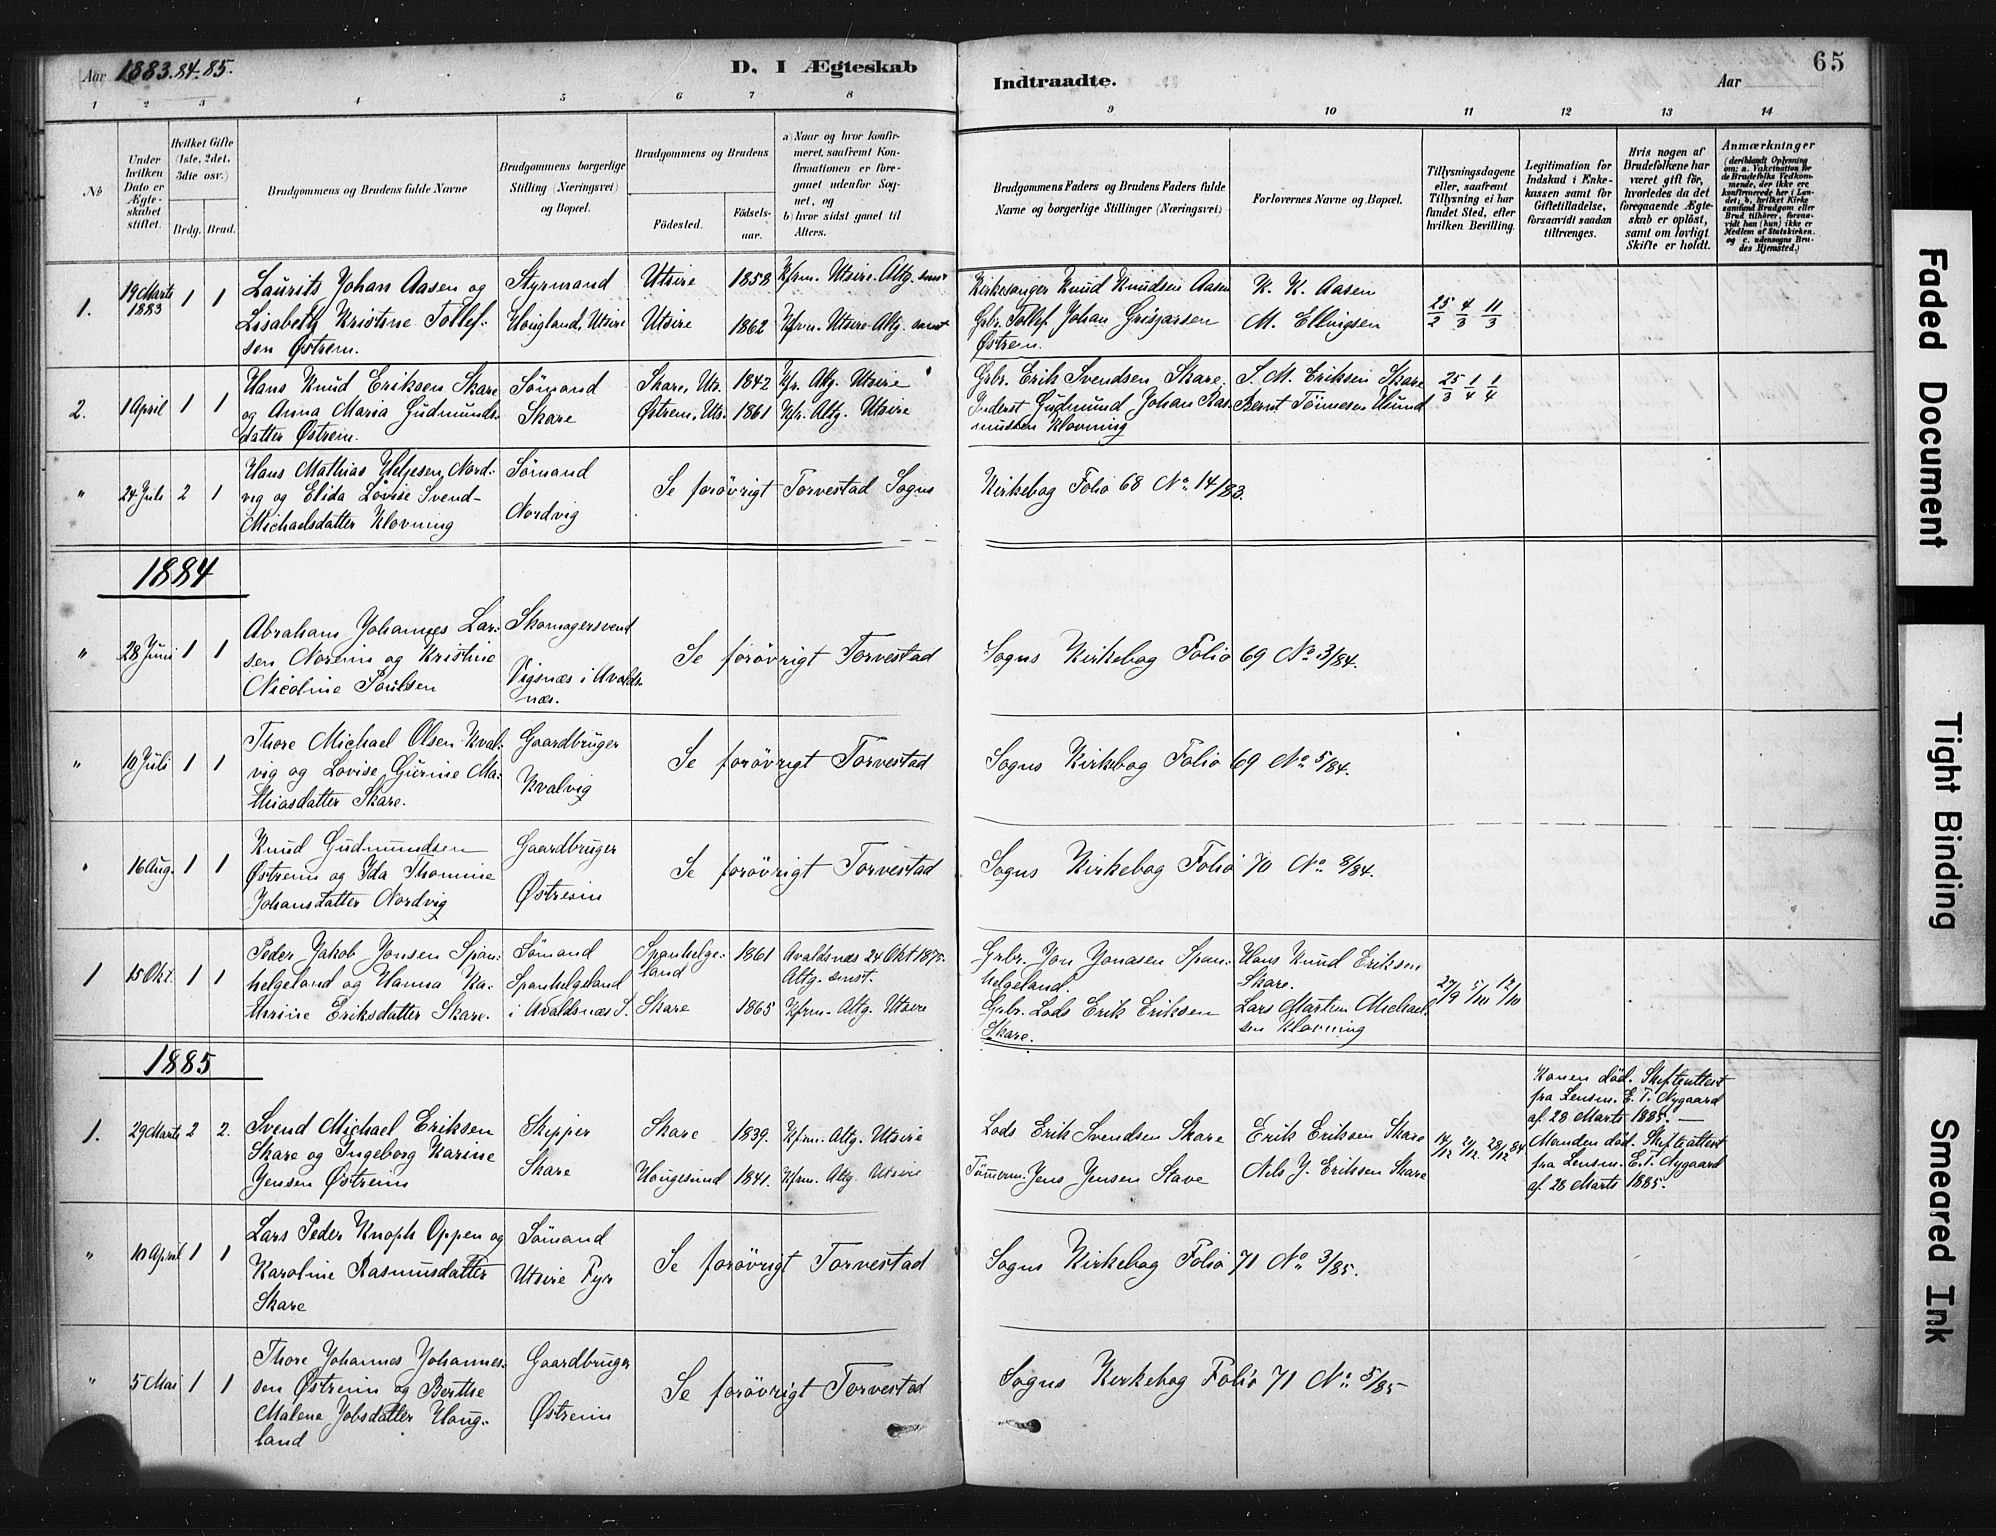 Aar 1883. 84. 85.
D. I Ægteskab
Indtraadte.
Aar
65
1 2 3 4 5 6 7 8 9 10 11 12 13 14
No
Under hvilken Dato er Ægteskabet stiftet.
Hvilket Gifte (1ste, 2det, 3die osv.)
Brdg. Brud.
Brudgommens og Brudens fulde Navne
Brudgommens borgerlige Stilling (Næringsvei) og Bopæl.
Brudgommens og Brudens
Fødested.
Fødsels-aar.
a) Naar og hvor konfirmeret, saafremt Konfirmationen er foregaaet udenfor Sognet, og
b) hvor sidst gaaet til Alters.
Brudgommens Faders og Brudens Faders fulde Navne og borgerlige Stillinger (Næringsvei)
Forlovernes Navne og Bopæl.
Tillysningsdagene eller, saafremt Tillysning ei har fundet Sted, efter hvilken Bevilling.
Legitimation for Indskud i Enkekassen samt for Giftetilladelse, forsaavidt saadan tiltrænges.
Hvis nogen af Brudefolkene har været gift før, hvorledes da det foregaaende Ægteskab er opløst, samt om lovligt Skifte er holdt.
Anmærkninger
(deriblandt Oplysning om: a. Vakcination for de Brudefolks Vedkommende, der ikke ere konfirmerede her i Landet; b. hvilket Kirkesamfund Brudgom eller Brud tilhører, forsaavidt han (hun) ikke er Medlem af Statskirken, og c. udensogns Brudes Hjemsted.)
1. 19 Marts 1883 1 1
Laurits Johan Aasen og
Lisabeth Kristine Tollef-
sen Østrem.
Styrmand
Hougland, Utsire
Utsire 1858 Kfrm. Utsire. Altg. smst
Utsire 1862 Kfrm. Utsire Altg. smst
Kirkesanger Knud Knudsen Aasen
Grbr. Tollef Johan Grisjarsen
Østrem.
K. K. Aasen
M. Ellingsen
25/2 4/3 11/3
2. 1 April 1 1
Hans Knud Eriksen Skare
og Anna Maria Gudmunds-
datter Østrem.
Sømand
Skare
Skare, Uts. 1842 Kfr. Altg. Utsire
Østrem, Uts. 1861 Kfr. Altg. Utsire
Grbr. Erik Svendsen Skare.
Inderst Gudmund Johan Ras-
mussen Klovning
S. M. Eriksen Skare
Bernt Tønnesen Hund
25/3 1/4 1/4
" 24 Juli 2 1
Hans Mathias Helgesen Nord-
vig og Elida Lovise Svend-
Michaelsdatter Klovning
Sømand
Nordvig
Se forøvrigt Torvestad Sogns
Kirkebog Folio 68 No. 14/83.
1884
" 28 Juni 1 1
Abraham Johannes Lar-
sen Norem og Kristine
Nicoline Poulsen
Skomagersvend
Vigsnæs i Avalds-
næs.
Se forøvrigt Torvestad
Sogns Kirkebog Folio 69 No. 3/84.
" 10 Juli 1 1
Thore Michael Olsen Kval-
vig og Lovise Gurine Ma-
thiasdatter Skare.
Gaardbruger
Kvalvig
Se forøvrigt Torvestad
Sogns Kirkebog Folio 69 No. 5/84.
" 16 Aug. 1 1
Knud Gudmundsen
Østrem og Ida Thomine
Johansdatter Nordvig
Gaardbruger
Østrem
Se forøvrigt Torvestad
Sogns Kirkebog Folio 70 No. 8/84.
1 15 Okt. 1 1
Peder Jakob Jonsen Span-
helgeland og Hanna Ka-
thrine Eriksdatter Skare.
Sømand
Spanhelgeland
i Avaldsnæs S.
Spanhelge-
land 1861 Avaldsnæs 24 Okt 1875.
Altg. smst.
Skare 1865 Kfrm. Altg. Utsire
Grbr. Jon Jonasen Span-
helgeland.
Grbr. Lods Erik Eriksen
Skare.
Hans Knud Eriksen
Skare.
Lars Martin Michael-
sen Klovning
27/9 5/10 12/10
1885
1. 29 Marts 2 2.
Svend Michael Eriksen
Skare og Ingeborg Karine
Jensen Østrem
Skipper
Skare
Skare 1839. Kfrm. Altg. Utsire
Hougesund 1841. Kfrm. Altg. Utsire
Lods Erik Svendsen Skare
Tømerm. Jens Jensen Stave
Erik Eriksen Skare
Nels J. Eriksen Skare
14/12 21/12. 28/12 84
Konen død. Skifteattest
fra Lensm. E. T. Nygaard
af 28 Marts 1885. —
Manden død. Skifteattest
fra Lensm. E. T. Nygaard
af. 28 Marts 1885.
" 10 April 1 1
Lars Peder Knoph Oppen og
Karoline Rasmusdatter
Skare
Sømand
Utsire Fyr
Se forøvrigt Torvestad
Sogns Kirkebog Folio 71 No. 3/85.
" 5 Mai 1 1
Thore Johannes Johannes-
sen Østrem og Berthe
Malene Jobsdatter Houg-
land
Gaardbruger
Østrem
Se forøvrigt Torvestad
Sogns Kirkebog Folio 71 No. 5/85
Faded Document
Tight Binding
Smeared Ink